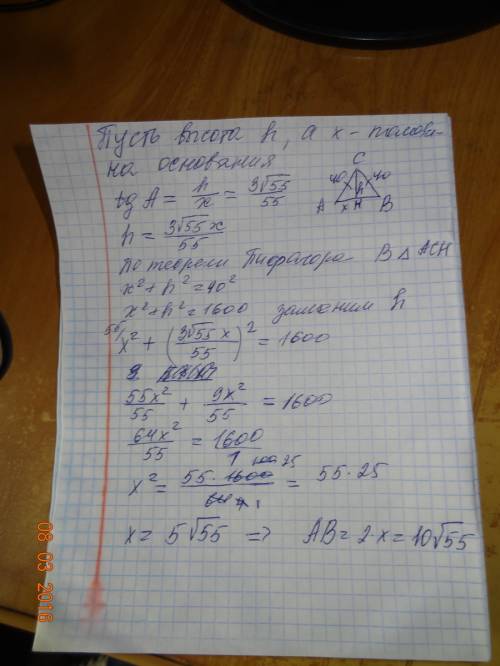 Пусть высота h, а x - полови-
на основания
tg A = h/x = 3√55/55
C
40 40
h
A x H B
h = 3√55 x/55
По теореме Пифагора В △ ACH
x² + h² = 40²
x² + h² = 1600 заменим h
55/ x² + (3√55 x/55)² = 1600
55x²/55 + 9x²/55 = 1600
64x²/55 = 1600/1
x² = 55·1600/64 = 55·25
x = 5√55 => AB = 2·x = 10√55
08 03 2016